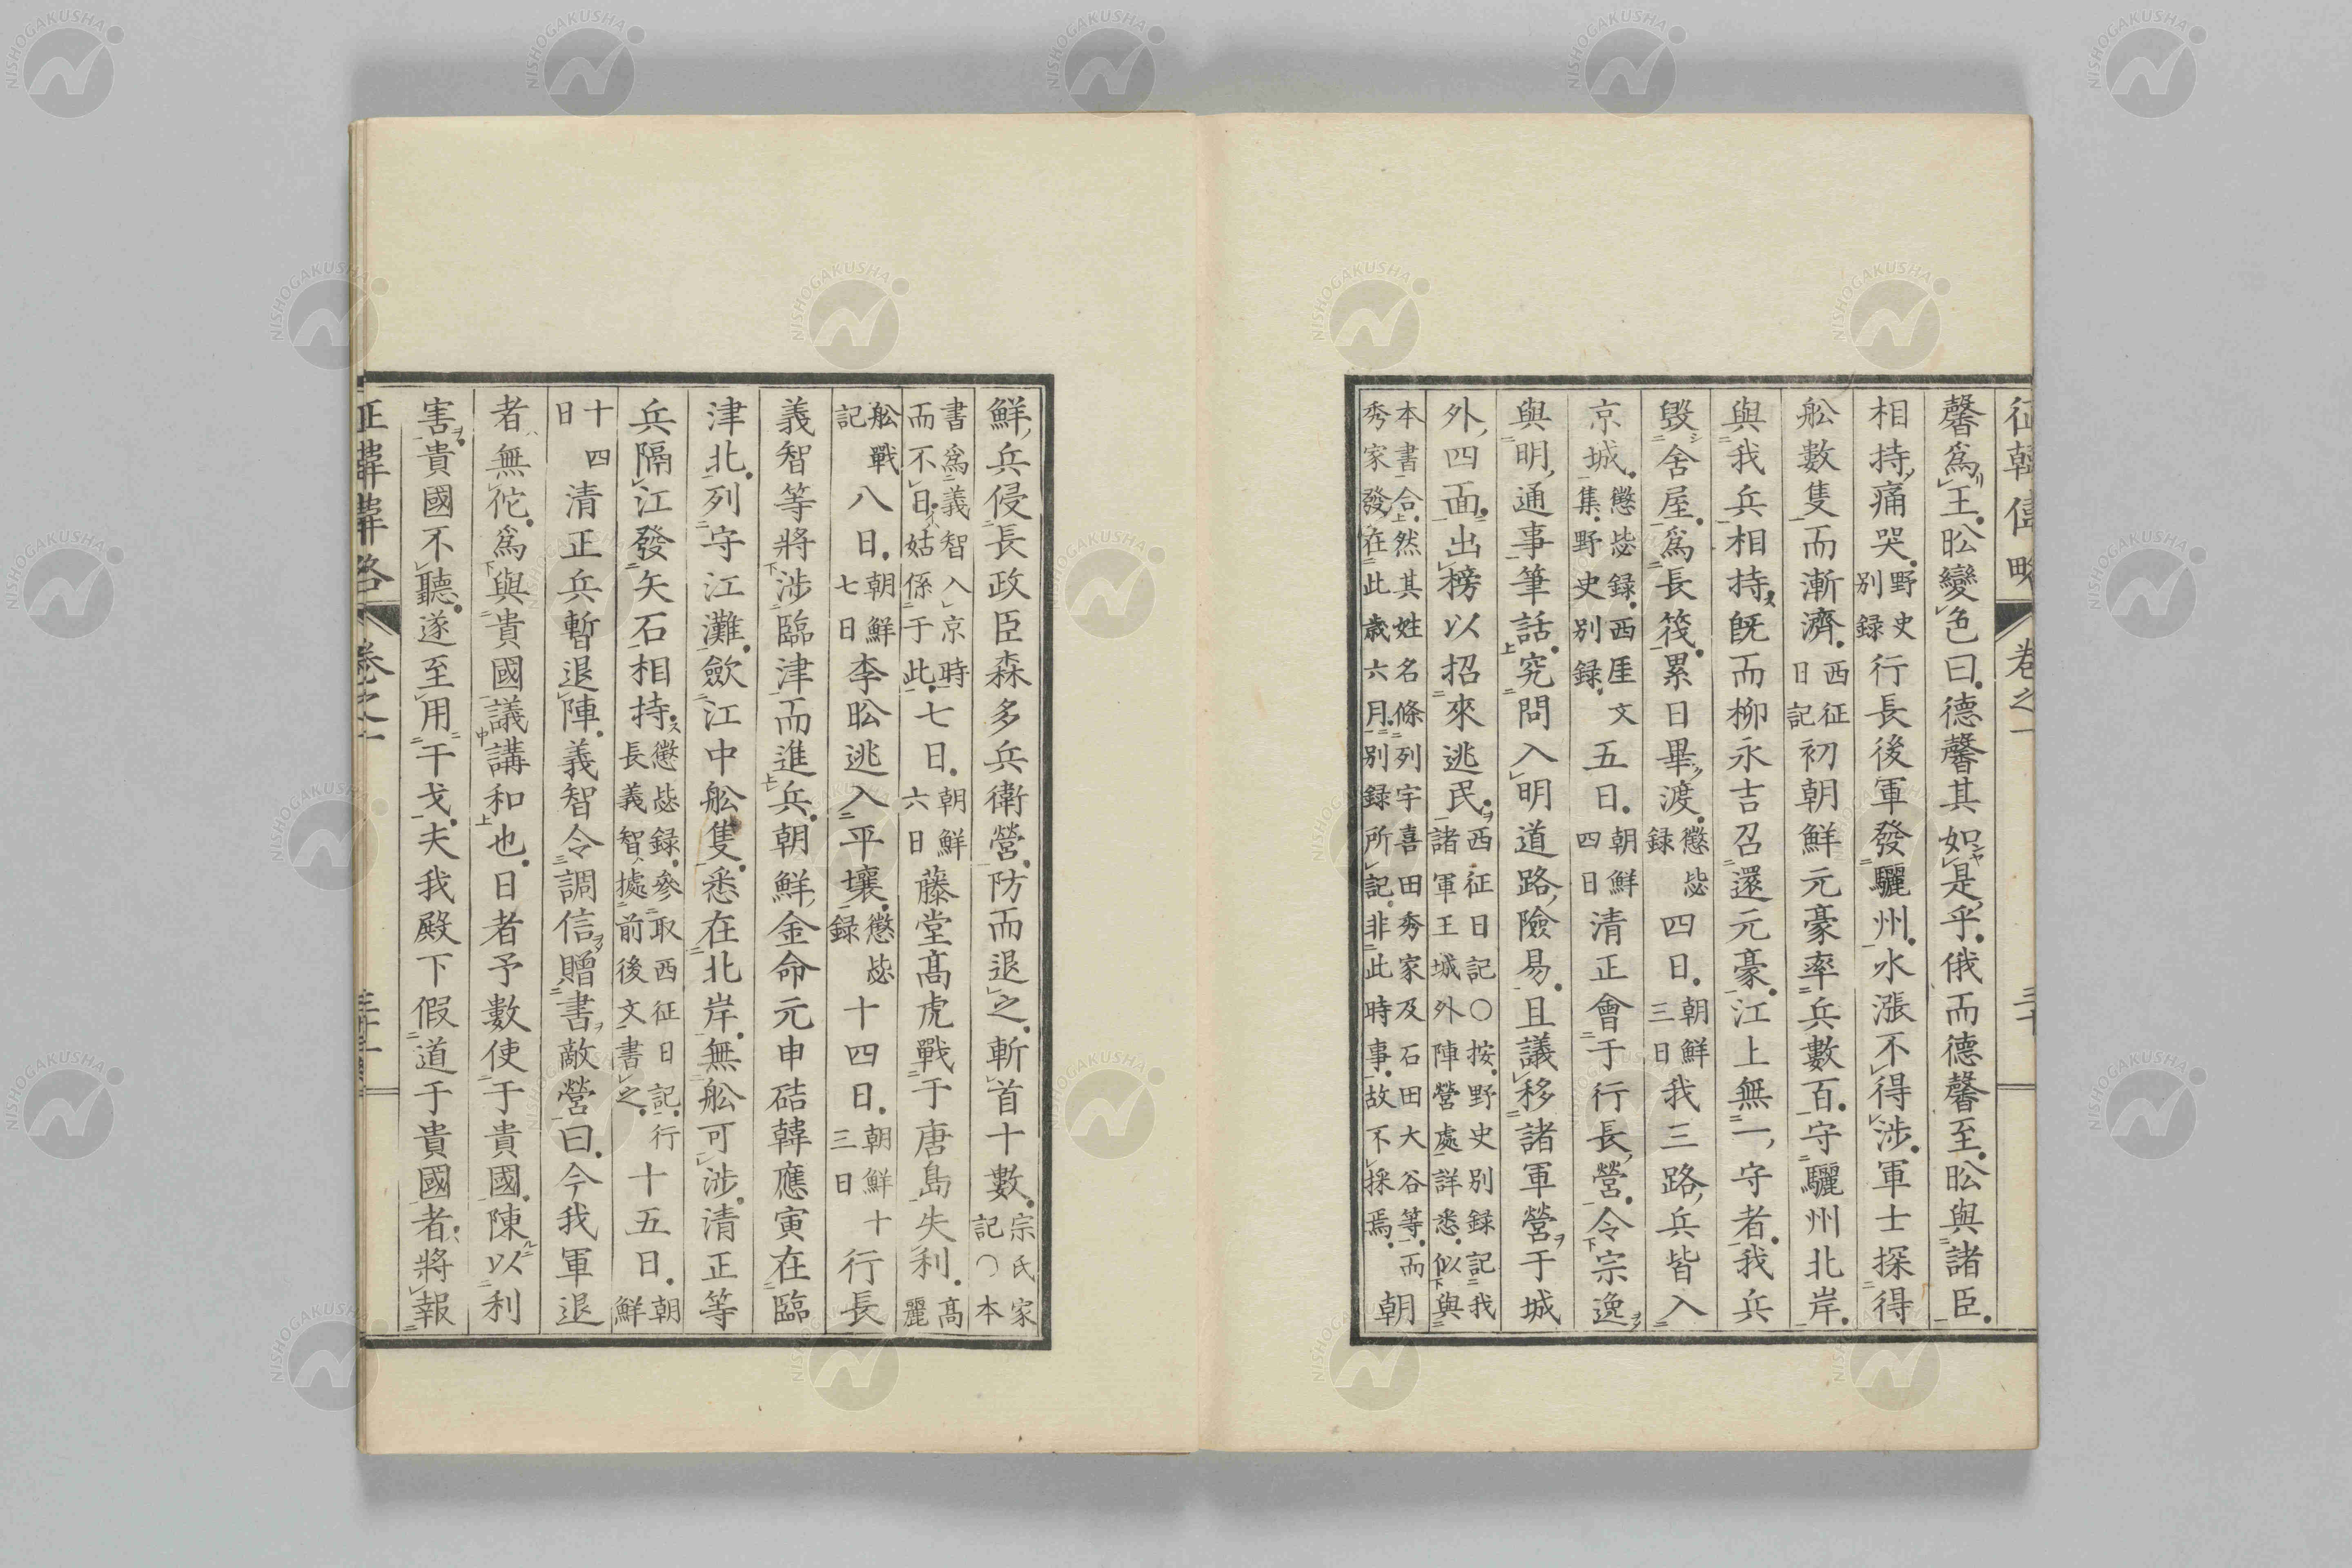 征韓偉略 卷之一 三十
馨爲王昖變色曰德馨其如是乎俄而德馨至昖與諸臣
相持痛哭野史別録行長後軍發驪州水漲不得渉軍士探得
舩數隻而漸濟西征日記初朝鮮元豪率兵數百守驪州北岸
與我兵相持既而柳永吉召還元豪江上無一守者我兵
毁舍屋爲長筏累日畢渡懲毖録四日朝鮮三日我三路兵皆入
京城懲毖録西厓文集野史別録五日朝鮮四日清正會于行長營令宗逸
與明通事筆話究問入明道路險易且議移諸軍營于城
外四面出榜以招來逃民西征日記〇按野史別録記我諸軍王城外陣營處詳悉似與
本書合然其姓名條列宇喜田秀家及石田大谷等而秀家發在此歳六月別録所記非此時事故不採焉朝
鮮兵侵長政臣森多兵衛營防而退之斬首十數宗氏家記〇本
書爲義智入京時而不日姑係于此七日朝鮮六日藤堂髙虎戰于唐島失利髙麗
舩戰記八日朝鮮七日李昖逃入平壤懲毖録十四日朝鮮十三日行長
義智等將渉臨津而進兵朝鮮金命元申硈韓應寅在臨
津北列守江灘歛江中舩隻悉在北岸無舩可渉清正等
兵隔江發矢石相持懲毖録參取西征日記行長義智據前後文書之十五日朝鮮
十四日清正兵暫退陣義智令調信贈書敵營曰今我軍退
者無佗爲與貴國議講和也日者予數使于貴國陳以利
害貴國不聽遂至用干戈夫我殿下假道于貴國者將報
卷之一
NISHOGAKUSHA